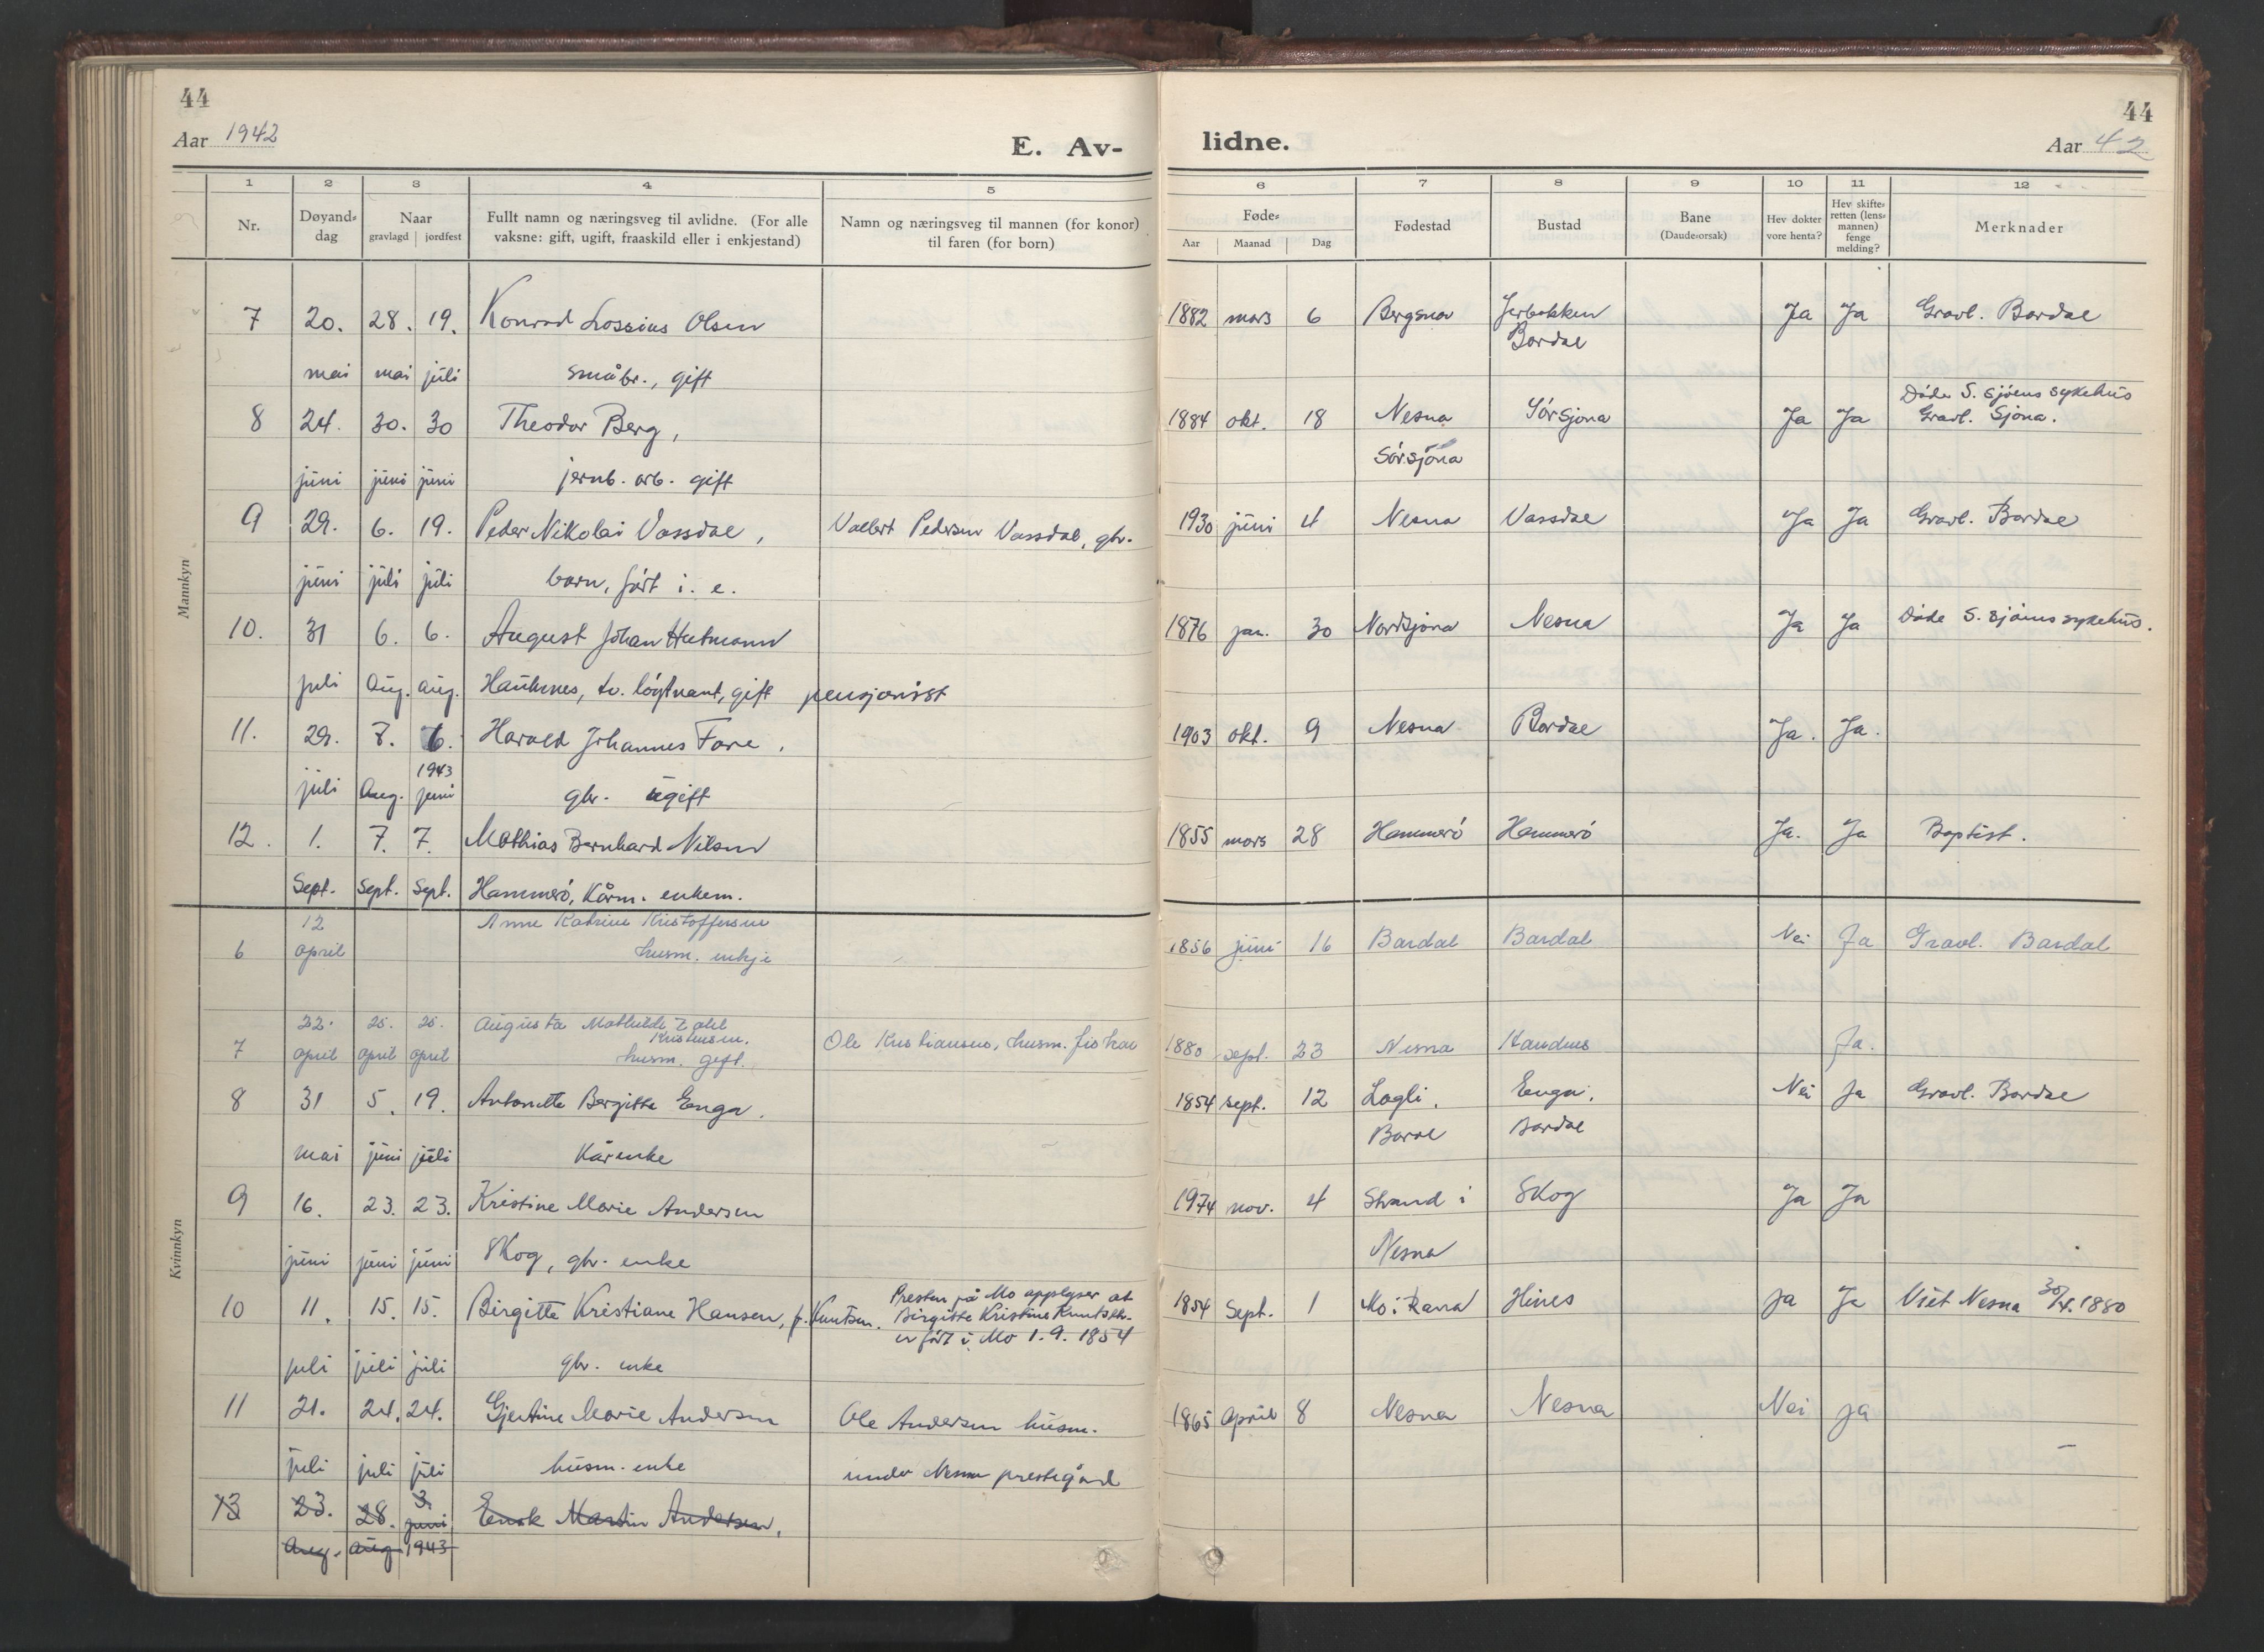 44
44
Aar 1942
E. Av-
lidne.
Aar 42
1 2 3 4 5 6 7 8 9 10 11 12
Nr.
Døyand-
dag
Naar
gravlagd | jordfest
Fullt namn og næringsveg til avlidne. (For alle
vaksne: gift, ugift, fraaskild eller i enkjestand)
Namn og næringsveg til mannen (for konor)
til faren (for born)
Føde-
Aar Maanad Dag
Fødestad
Bustad
Bane
(Daude-orsak)
Hev dokter
vore henta?
Hev skifte-
retten (lens-
mannen)
fenge
melding?
Merknader
Mannkyn
7 20. 28. 19. Konrad Lossius Olsen 1882 mars 6 Bergsnov Ja Ja Gravl. Bardal
Bardal
mai mai júli småbr., gift
Døde S. sjøens sykehús
8 24. 30. 30 Theodor Berg, 1884 okt. 18 Nesna Sørsjona Ja Ja Gravl. Sjona.
Sørsjona
júni júni júni jernb. arb. gift
9 29. 6. 19. Peder Nikolai Vassdal, Valbert Pedersen Vassdal, gbr. 1930 júni 4 Nesna Vassdal Ja Ja Gravl. Bardal
júni júli júli barn, født i. e.
10. 31 6. 6. August Johan Hutmann 1876 jan. 30 Nordsjona Nesna Ja Ja Døde S. sjøens sykehús.
juli Aúg. aúg. Haúknes, tv. løytnant, gift pensjonist
11. 29. 7. 6. Harald Johannes Fore, 1903 okt. 9 Nesna Bardal Ja. Ja.
1943
júli Aug. juni gbr. úgift
12. 1. 7. 7. Mathias Bernhard Nilsen 1855 mars 28 Hammerø Hammerø Ja. Ja Baptist.
Sept. Sept. Sept. Hammerø, kårm. enkem.
Kvinnkyn
12 Anne Katrine Kristoffersen
6 april husm. enkje 1856 júni 16 Bardal Bardal Nei Ja Gravl. Bardal
22. 25. 25. Augusta Mathilde Zahl
Kristensen.
7 april april april husm. gift. Ole Kristiansen, husm. fisker 1880 sept. 23 Nesna Handnes Ja.
8 31 5. 19. Antonette Bergitte Enga. 1854 sept. 12 Lagli. Enga, Nei Ja Gravl. Bardal
Bardal
mai júni júli Kårenke
9 16. 23. 23. Kristine Marie Andersen 1974 nov. 4 Strand i Skog Ja Ja
Nesna
júni júni júni Skog, gbr. enke
Presten på Mo opplyser at
10 11. 15. 15. Birgitte Kristiane Hansen, f. Knutsen. Birgitte Kristine Knutsdtr. 1854 Sept. 1 Mo i Rana Hines Ja Ja Viet Nesna 30/X. 1880
er født i Mo 1. 9. 1854
juli júli júli gbr. enke
11 21. 24. 24. Gjertine Marie Andersen Ole Andersen húsm. 1865 April 8 Nesna Nesna Nei Ja
juli juli júli húsm. enke under Nesna prestegård
13 23. 28. 3. Enok Martin Andersen,
juni
Aug. aúg 1943